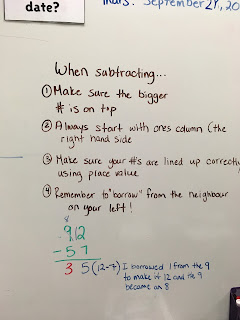 date?
Thurs. September 21, 20
When subtracting...
① Make sure the bigger
# is on top
② Always start with ones column (the
right hand side
③ Make sure your #s are lined up correctly
using place value
④ Remember to "borrow" from the neighbour
on your left!
8
9 12
- 5 7
3 5 (12-7) I borrowed 1 from the 9
to make it 12 and the 9
became an 8